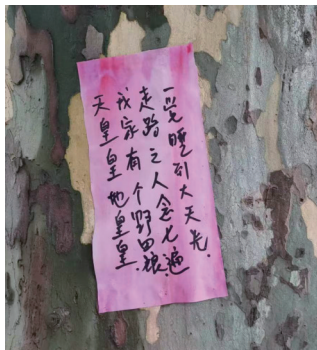 天皇皇地皇皇
我家有个野田
走路之人念七遍
一觉睡到大天光.